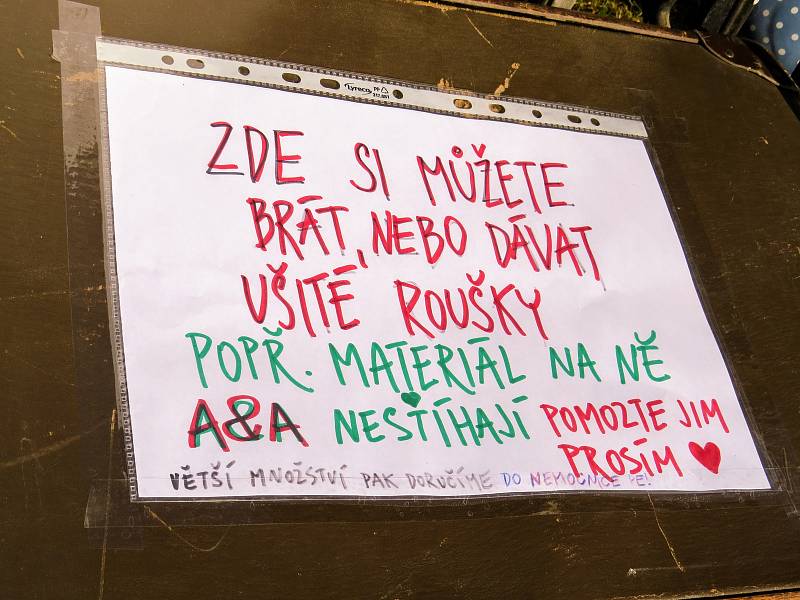 Lyreco PP
ZDE SI MŮŽETE
BRÁT, NEBO DÁVAT
UŠITÉ ROUŠKY
POPŘ. MATERIÁL NA NĚ
A&A NESTÍHAJÍ POMOZTE JIM
PROSÍM ♥
VĚTŠÍ MNOŽSTVÍ PAK DORUČÍME DO NEMOCNICE